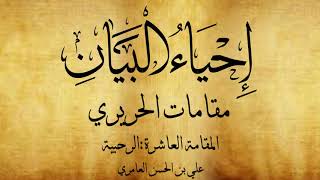 إِحْيَاءُ الْبَيَانِ
مقامات الحريري
المقامة العاشرة:الرحبية
علي بن الحسن العامري